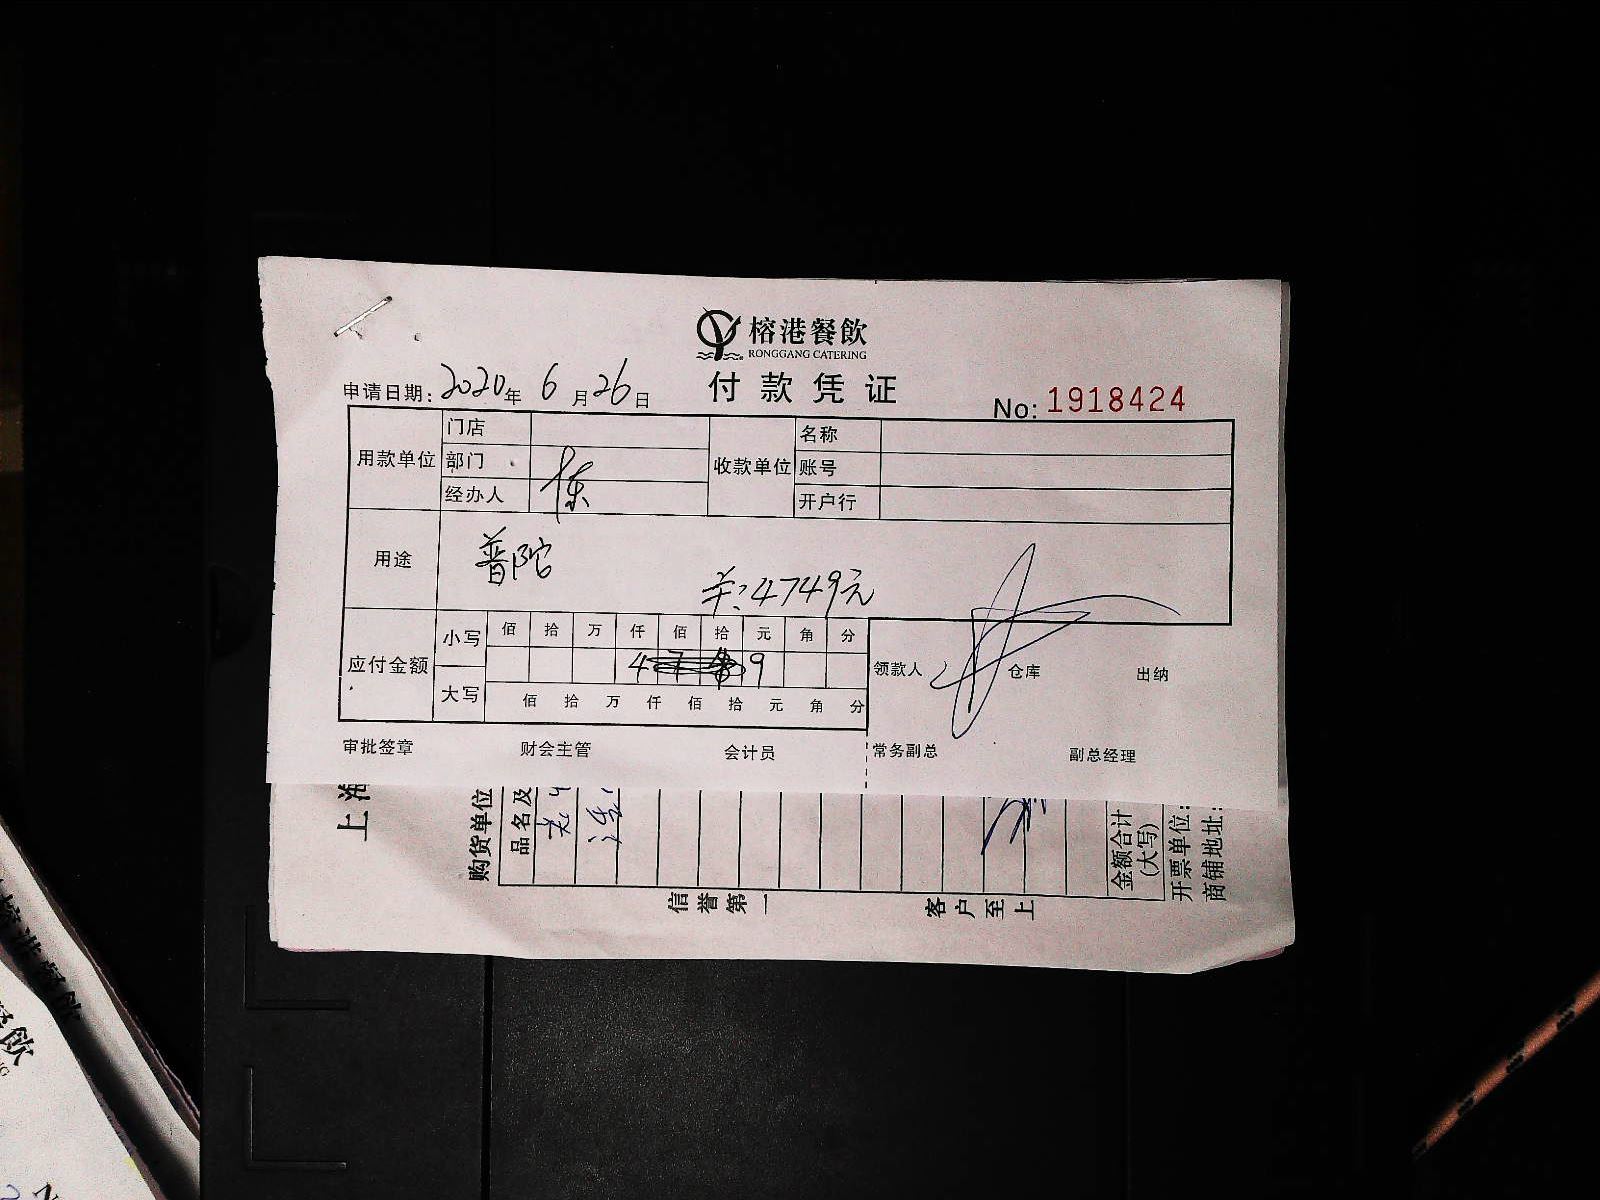 榕港餐飲
RONGGANG CATERING
付款凭证
申请日期:2020年6月26日
No: 1918424
用款单位 门店 收款单位 名称
部门 账号
经办人 开户行
用途 普陀
4749元
应付金额 小写 佰 拾 万 仟 佰 拾 元 角 分
4 9
大写 佰 拾 万 仟 佰 拾 元 角 分
领款人 仓库 出纳
审批签章 财会主管 会计员 常务副总 副总经理
上海
购货单位
品名及
金额合计
(大写)
开票单位:
商铺地址:
信誉第一
客户至上
餐飲